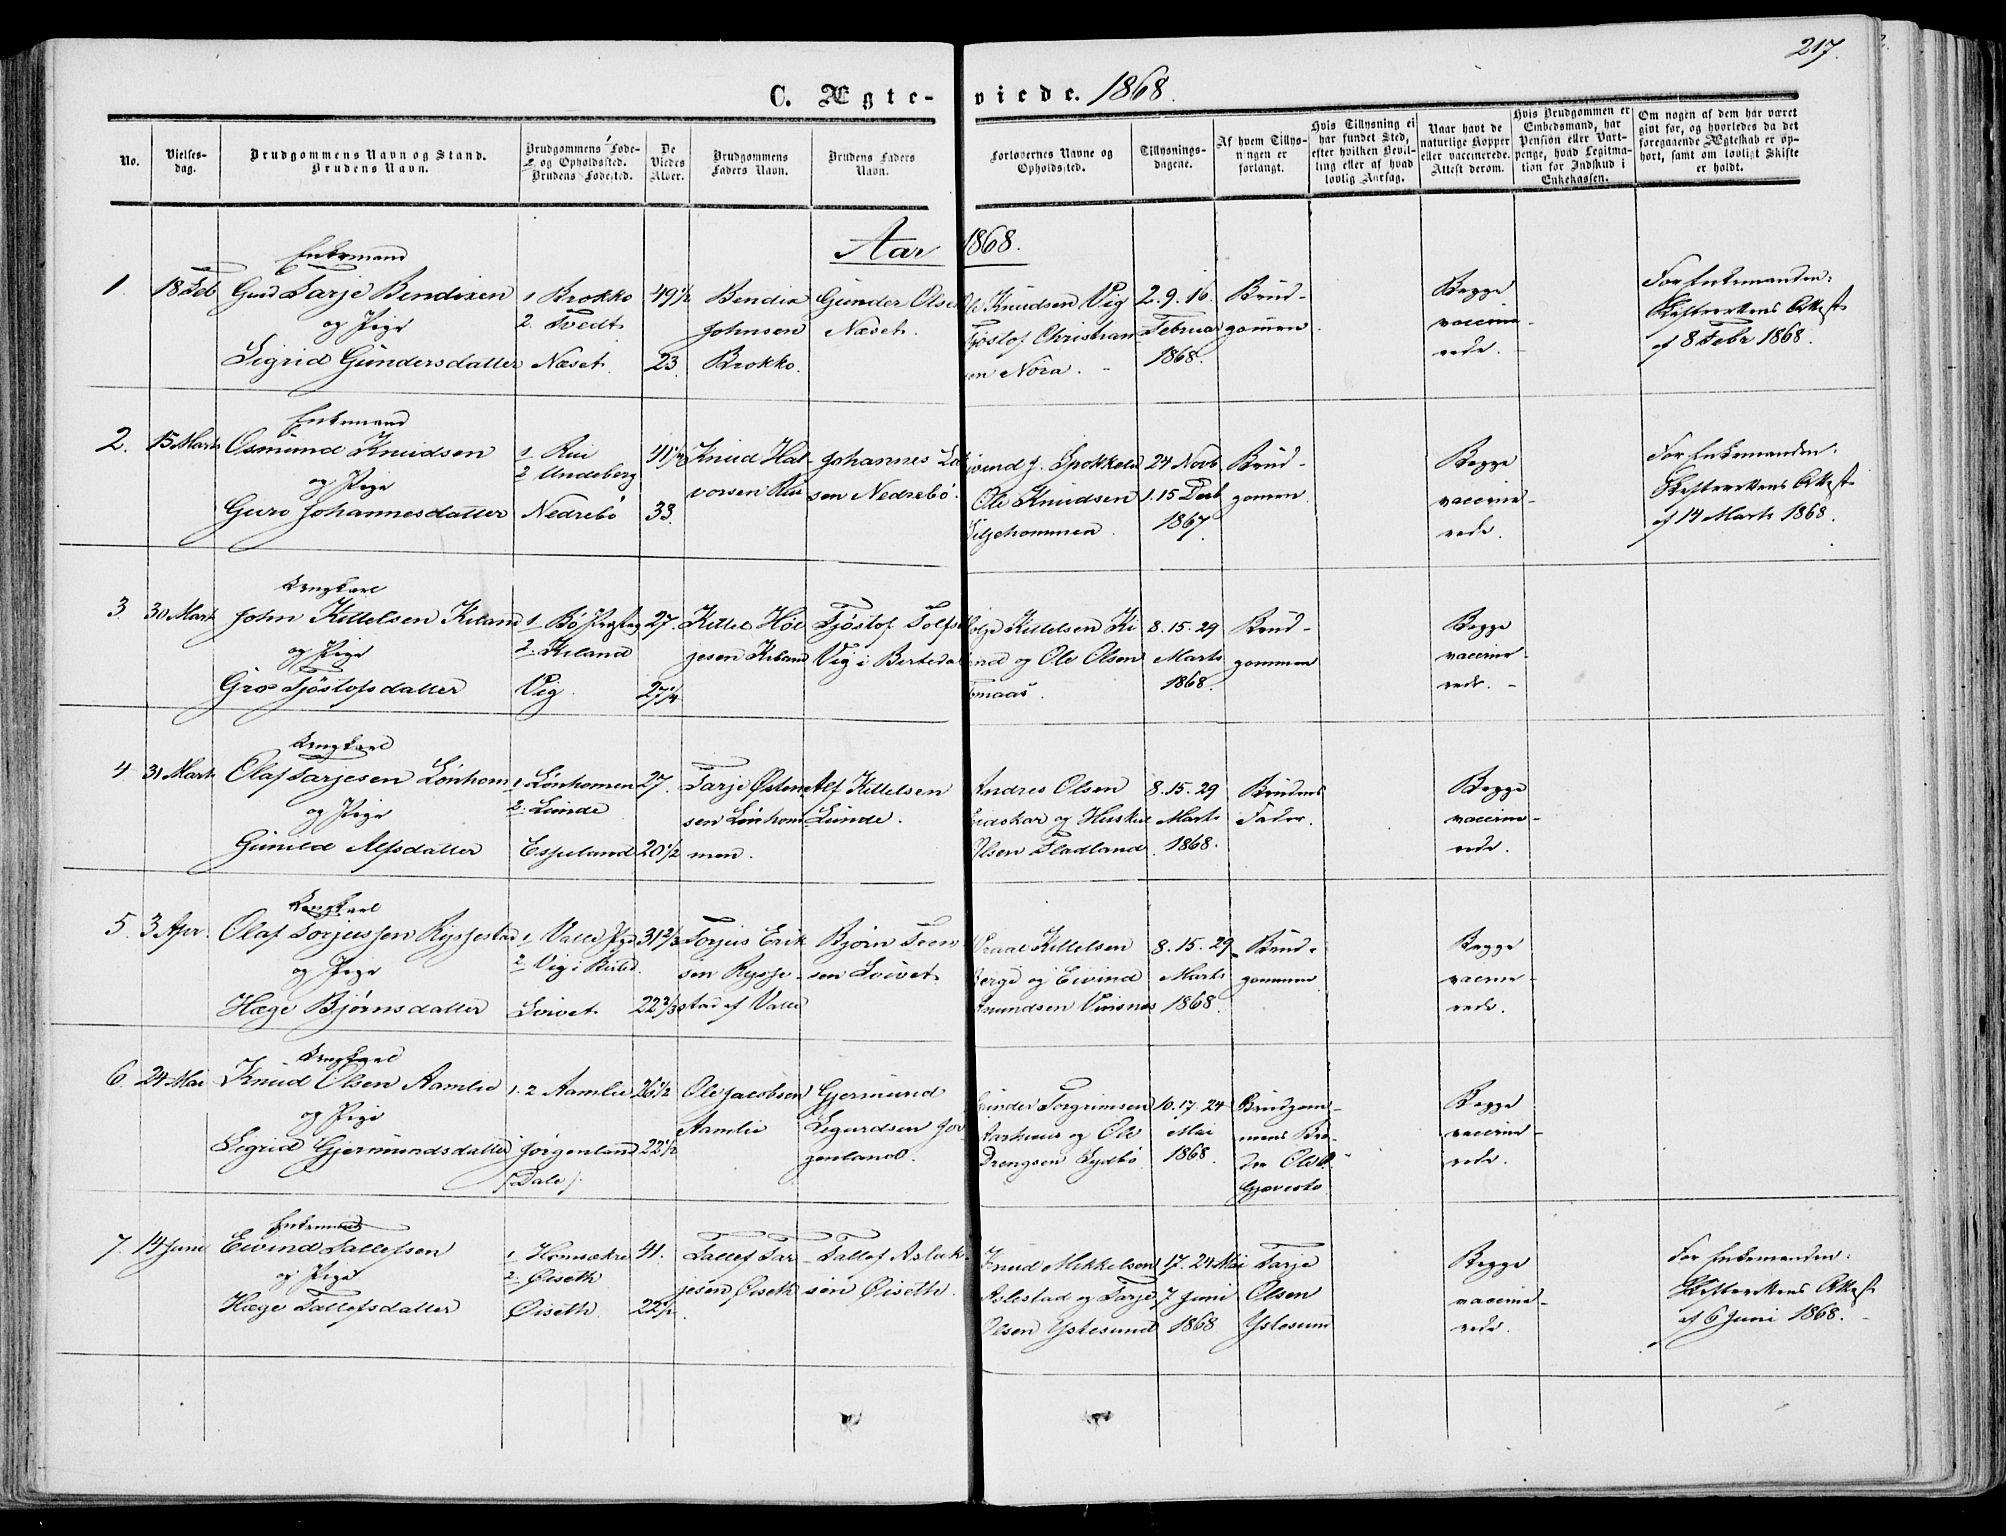 217.
C. Ægte-viede. 1868.
No.
Vielses-
dag.
Brudgommens Navn og Stand.
Brudens Navn.
Brudgommens Føde-
og Opholdssted.
Brudens Fødested.
De
Viedes
Alder.
Brudgommens
Faders Navn.
Brudens Faders
Navn.
Forlovernes Navne og
Opholdssted.
Tillysnings-
dagene.
Af hvem Tillys-
ningen er
forlangt.
Hvis Tillysning ei
har fundet Sted,
efter hvilken Bevil-
ling eller af hvad
lovlig Aarsag.
Naar havt de
naturlige Kopper
eller vaccinerede.
Attest derom.
Hvis Brudgommen er
Embedsmand, har
Pension eller Vart-
penge, hvad Legitima-
tion for Indskud i
Enkekassen.
Om nogen af dem har været
gift før, og hvorledes da det
foregaaende Ægteskab er op-
hørt, samt om lovligt Skifte
er holdt.
Aar 1868.
1. 18 Feb
Enkemand
Tarje Bendixen
og Pige
Sigrid Gundersdatter
1 Brokko
2. Tvedt
Næset.
49 1/2
23.
Bendix
Johnsen
Brokko.
Gunder Olsen
Næset.
Knudsen Vig
Tjøstof Christian
sen Nora.
2. 9. 16.
Februar
1868.
Brud-
gommen
Begge
vaccine-
rede.
For Enkemanden:
Skifterettens Attest
af 8 Febr 1868.
2. 15 Marts
Enkemand
Osmund Knudsen
og Pige
Guro Johannesdatter
1. Rui
2 Undeberg
Nedrebø
41 1/2
33.
Knud Hal-
vorsen Rui
Johannes
sen Nedrebø.
Ole Knudsen
24 Novb
1. 15 Decb
1867.
Brud-
gommen.
Begge
vaccine-
rede.
For Enkemanden:
Skifterettens Attest
af 14 Marts 1868.
3 30 Marts
Ungkarl
John Kittelsen Kiland
og Pige
Gro Tjøstofsdatter
1. Bø
2. Kiland
Vig.
27.
27 1/4
Kittel Høl-
jesen Kiland
Tjøstof Tolfs
Vig i Birtedal
Kittelsen Ki
land og Ole Olsen
8. 15. 29
Marts
1868.
Brud-
gommen
Begge
vaccine-
rede.
4 31 Marts
Ungkarl
Olaf Tarjesen Lønhom
og Pige
Gunild Alfsdatter
1. Lønhomen
2. Lunde
Espeland
27.
20 1/2
Tarje Østen-
sen Lønhom-
men.
Alf Kittelsen
Lunde.
Andres Olsen
Olsen Fladland
8. 15. 29
Marts
1868.
Brudens
Fader.
Begge
vaccine-
rede.
5. 3 Apr.
Ungkarl
Olaf Torjussen Rysjestad
og Pige
Hæge Bjørnsdatter
1. Valle
2. Vig i Birted.
Loivet
31 2/3
22 2/3
Torjus Erik
sen Rysje-
stad af Valle
Bjørn Teen
sen Loivet
Kittelsen
Berge og Eivind
Amundsen Vinsnes
8. 15. 29
Marts
1868.
Brud-
gommen
Begge
vaccine-
rede.
6. 24 Mai
Ungkarl
Knud Olsen Aamlie
og Pige
Sigrid Gjermundsdatter
1. 2 Aamlie
Jørgenland
(Dale).
26 1/2
22 1/2
Ole Jacobsen
Aamlie
Gjermund
Sigurdsen Jør
genland.
Gunder Torgrimsen
Aarhuus og Ole
Drengsen Sydbø
10. 17. 24
Mai
1868.
Brudgom-
mens Bro-
der Ole O.
Gjøvesto
Begge
vaccine-
rede.
7. 14 Juni
Enkemand
Eivind Tallefsen
og Pige
Hæge Tallefsdatter
2. Øiseth
Øiseth
41.
22 1/2
Tallef Tar-
jesen Øiseth
Tallef Aslak-
sen Øiseth.
Knud Mikkelsen
Aslestad og Tarje
Olsen Ystesund
17. 24 Mai
7 Juni
1868
Tarje
Olsen
Ystesund
Begge
vaccine-
rede.
For Enkemanden:
Skifterettens Attest
af 6 Juni 1868.